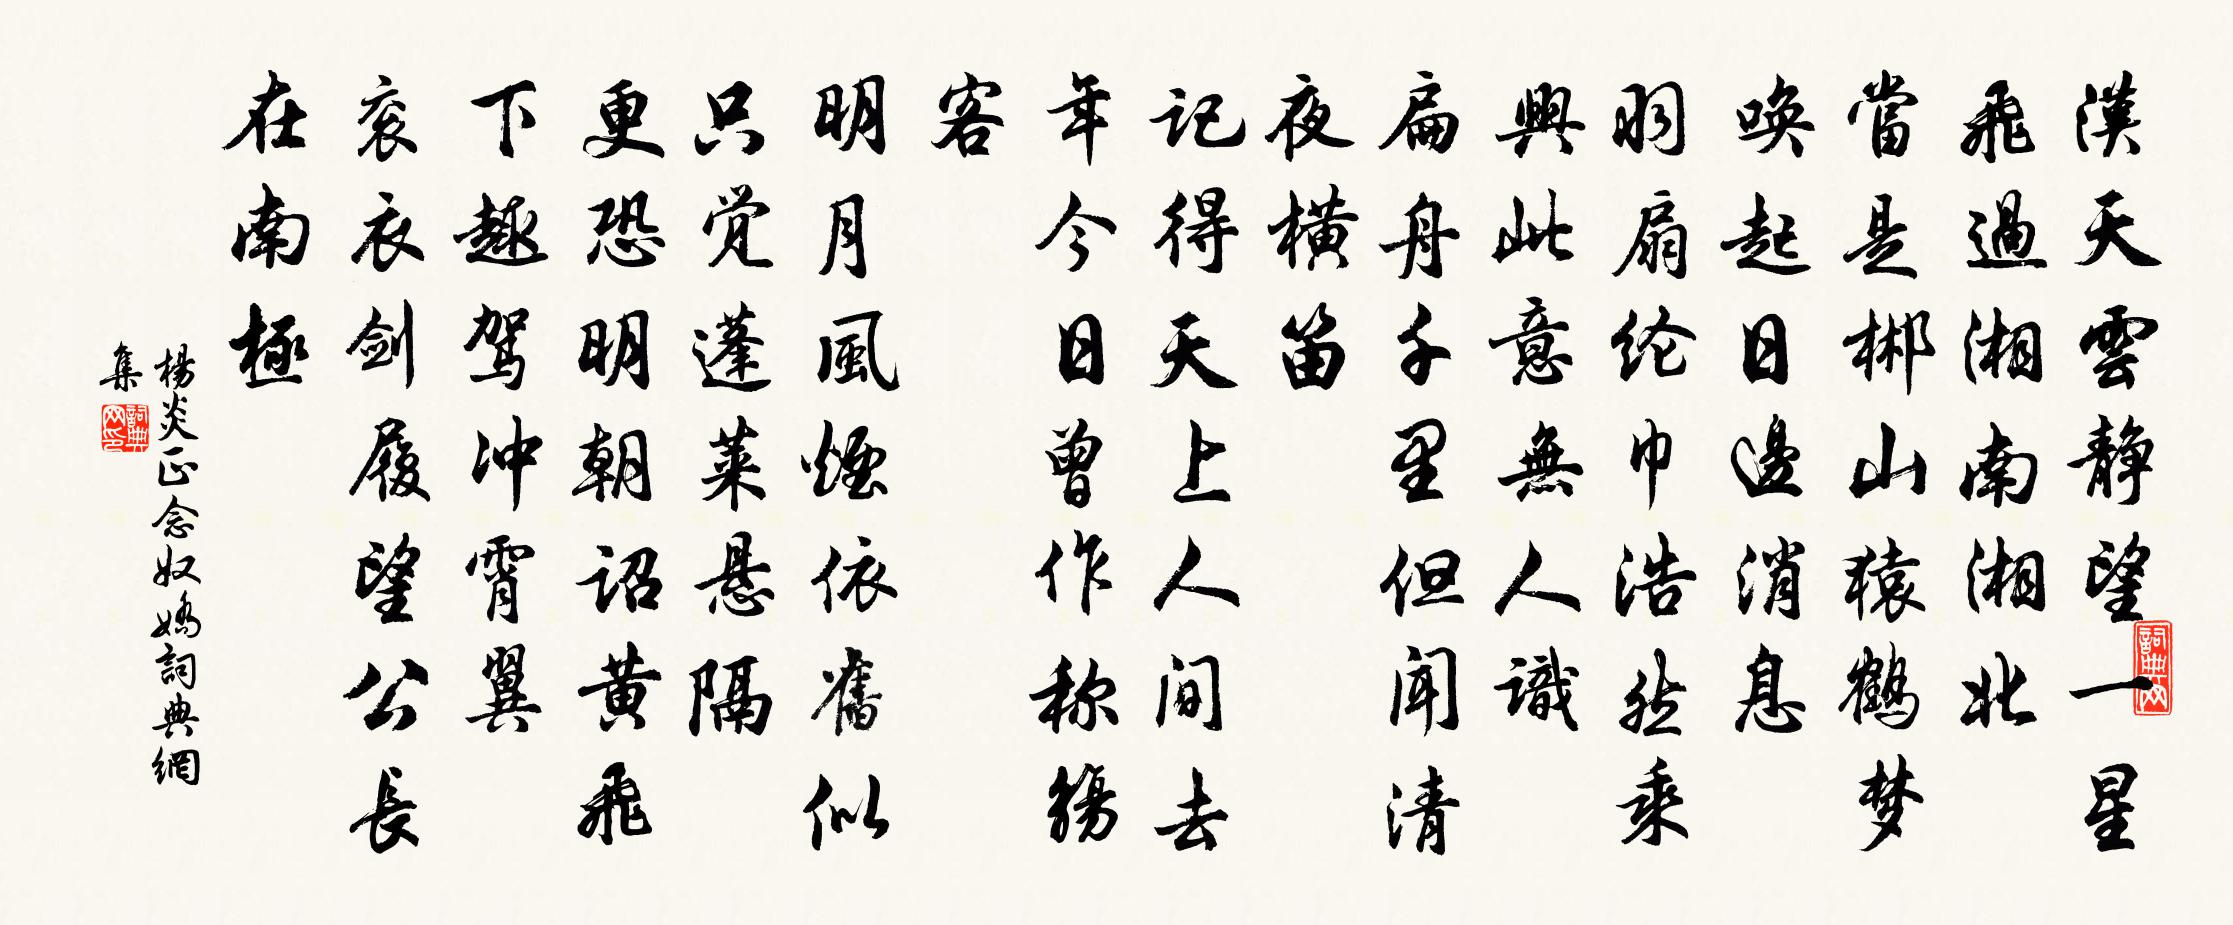 漢天雲靜望一星
飛過湘南湘北
當是郴山猿鶴梦
喚起日邊消息
羽扇纶巾浩然乘
興此意無人識
扁舟千里但聞清
夜橫笛
记得天上人间去
年今日曾作称觞
客
明月風煙依舊似
只觉蓬莱悬隔
更恐明朝诏黄飛
下趣驾冲霄翼
衮衣剑履望公長
在南極
楊炎正念奴嬌詞典網
集
詞典网印
詞典网